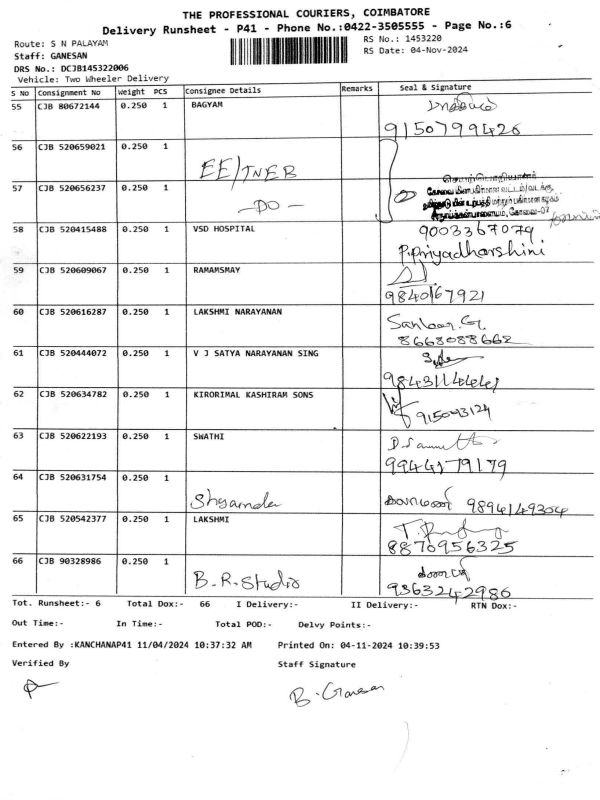 THE PROFESSIONAL COURIERS, COIMBATORE
Delivery Runsheet - P41 - Phone No.:0422-3505555 - Page No.:6
Route: S N PALAYAM
RS No.: 1453220
Staff: GANESAN
RS Date: 04-Nov-2024
DRS No.: DCJB145322006
Vehicle: Two Wheeler Delivery
S No Consignment No Weight PCS Consignee Details Remarks Seal & Signature
55 CJB 80672144 0.250 1 BAGYAM
9150799426
56 CJB 520659021 0.250 1 EE/TNEB
57 CJB 520656237 0.250 1 -DO-
கோவை மின் பகிர்மான வட்டம்/வடக்கு
58 CJB 520415488 0.250 1 VSD HOSPITAL 9003367079
P.Priyadharshini
59 CJB 520609067 0.250 1 RAMAMSMAY
9840167921
60 CJB 520616287 0.250 1 LAKSHMI NARAYANAN
8668088662
61 CJB 520444072 0.250 1 V J SATYA NARAYANAN SING
62 CJB 520634782 0.250 1 KIRORIMAL KASHIRAM SONS
63 CJB 520622193 0.250 1 SWATHI
9944179179
64 CJB 520631754 0.250 1 Shyamala 9894149304
65 CJB 520542377 0.250 1 LAKSHMI
8870956325
66 CJB 90328986 0.250 1 B.R.Studio
9363242986
Tot. Runsheet:- 6 Total Dox:- 66 I Delivery:- II Delivery:- RTN Dox:-
Out Time:- In Time:- Total POD:- Delvy Points:-
Entered By :KANCHANAP41 11/04/2024 10:37:32 AM Printed On: 04-11-2024 10:39:53
Verified By Staff Signature
B. Ganesan